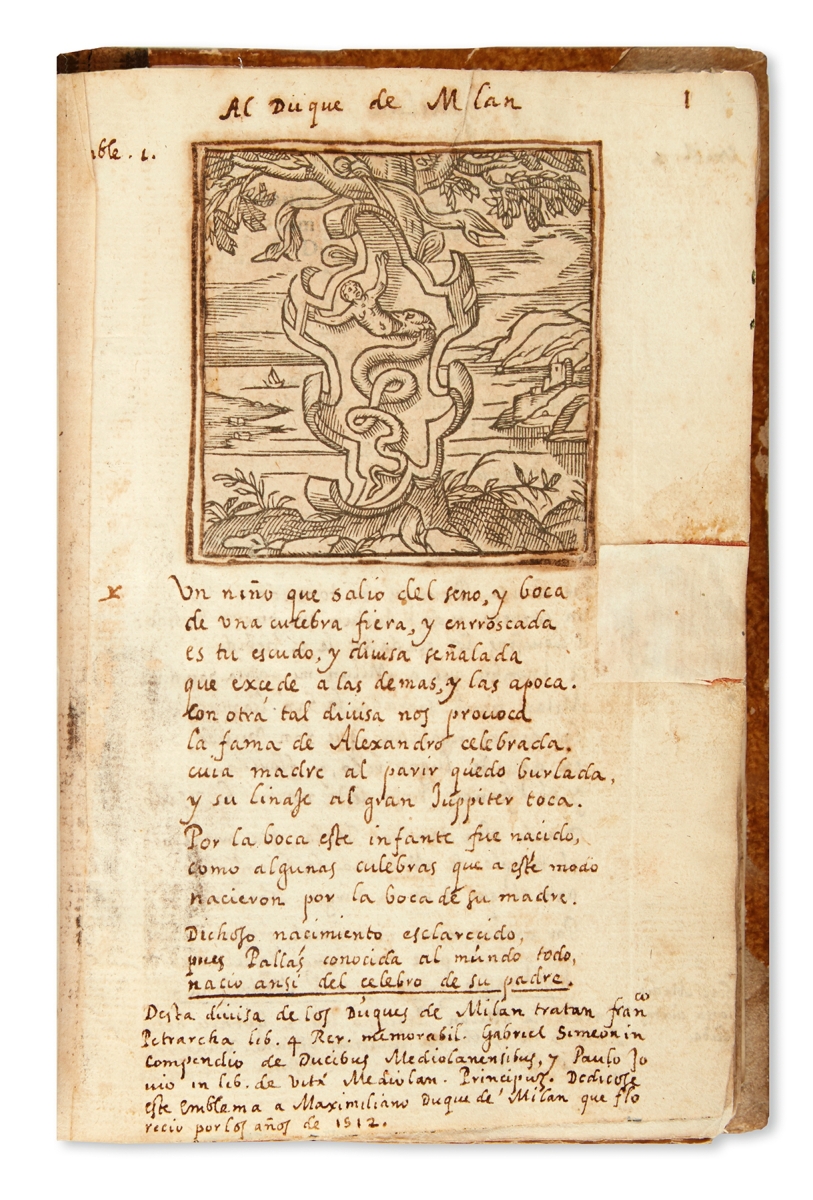 Al Duque de Mlan
1
ble. 1.
Vn niño que salio del seno, y boca
de vna culebra fiera, y enrroscada
es tu escudo, y diuisa señalada
que excede a las demas, y las apoca.
Con otra tal diuisa nos prouoca
la fama de Alexandro celebrada.
cuia madre al parir quedo burlada,
y su linaje al gran Iuppiter toca.
Por la boca este infante fue nacido,
como algunas culebras que a este modo
nacieron por la boca de su madre.
Dichoso nacimiento esclarecido,
pues Pallas conocida al mundo todo,
nacio ansi del celebro de su padre.
Desta diuisa de los Duques de Milan tratan franco
Petrarcha lib. 4 Rer. memorabil. Gabriel Simeon in
compendio de Ducibus Mediolanensibus, y Paulo Jo
uio in lib. de vita Mediolan. Principus. Dedicose
este Emblema a Maximiliano Duque de Milan que flo
recio por los años de 1512.